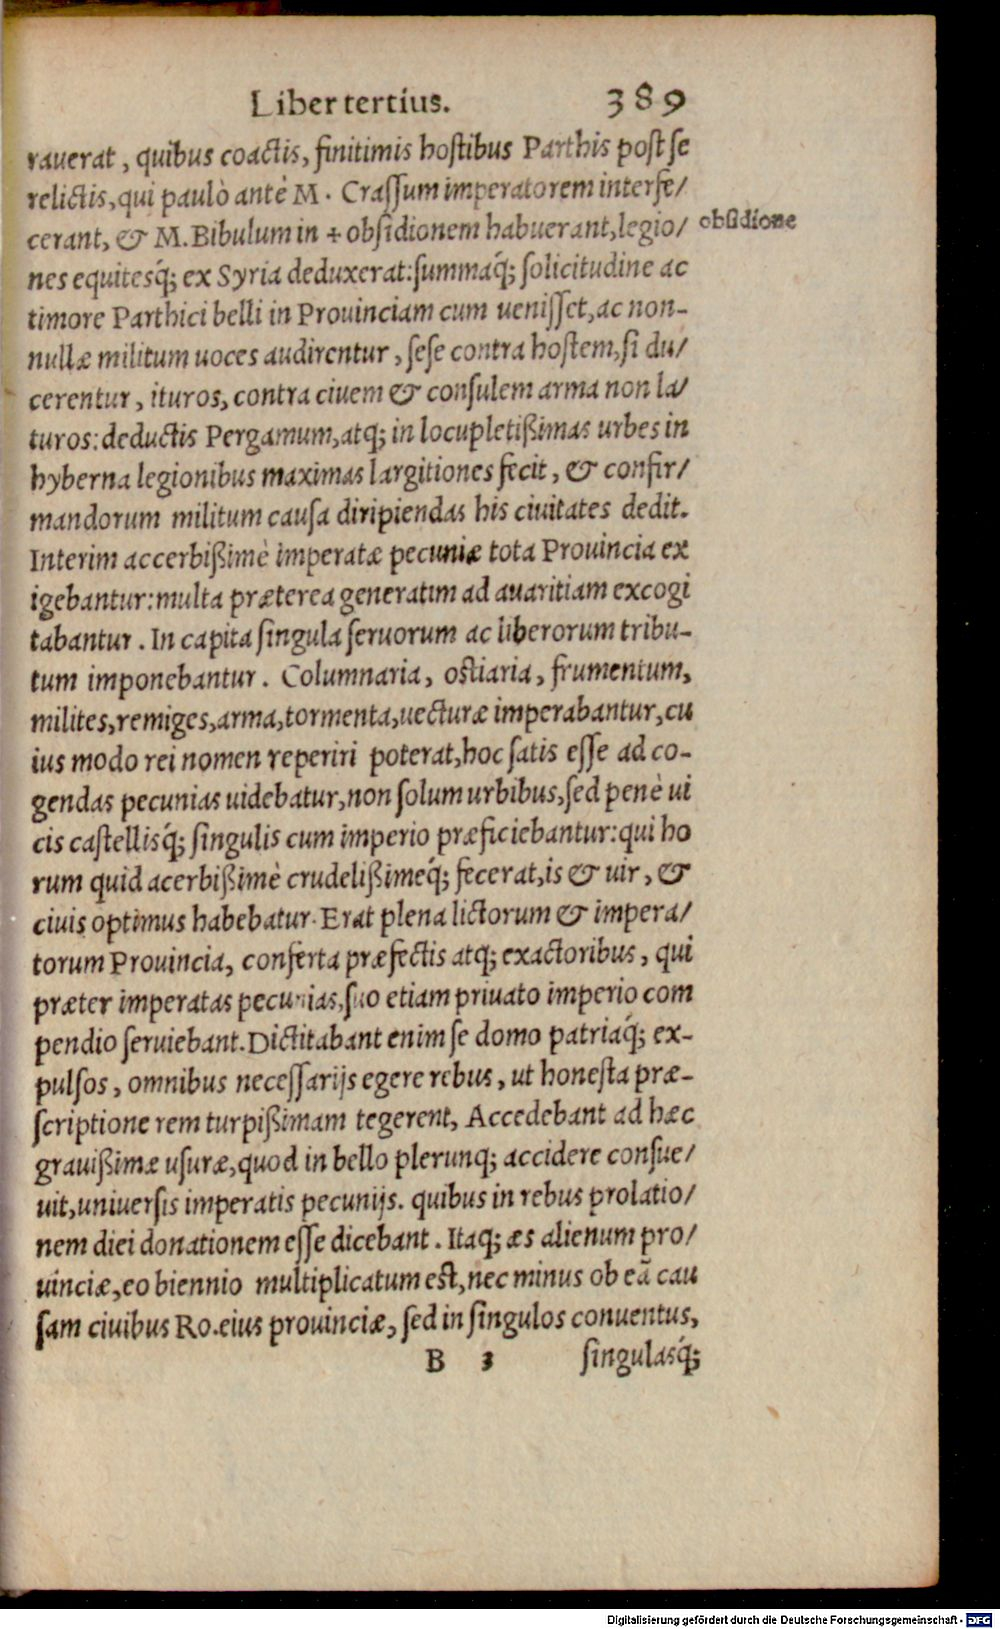 Liber tertius. 389
rauerat, quibus coactis, finitimis hostibus Parthis post se
relictis, qui paulò antè M. Crassum imperatorem interfe/
cerant, & M. Bibulum in + obsidionem habuerant, legio/ obsidione
nes equitesq́; ex Syria deduxerat: summaq́; solicitudine ac
timore Parthici belli in Prouinciam cum uenisset, ac non-
nullæ militum uoces audirentur, sese contra hostem, si du/
cerentur, ituros, contra ciuem & consulem arma non la/
turos: deductis Pergamum, atq; in locupletißimas urbes in
hyberna legionibus maximas largitiones fecit, & confir/
mandorum militum causa diripiendas his ciuitates dedit.
Interim accerbißimè imperatæ pecuniæ tota Prouincia ex
igebantur: multa præterea generatim ad auaritiam excogi
tabantur. In capita singula seruorum ac liberorum tribu-
tum imponebantur. Columnaria, ostiaria, frumentum,
milites, remiges, arma, tormenta, uecturæ imperabantur, cu
ius modo rei nomen reperiri poterat, hoc satis esse ad co-
gendas pecunias uidebatur, non solum urbibus, sed penè ui
cis castellisq́; singulis cum imperio præficiebantur: qui ho
rum quid acerbißimè crudelißimeq́; fecerat, is & uir, &
ciuis optimus habebatur. Erat plena lictorum & impera/
torum Prouincia, conferta præfectis atq; exactoribus, qui
præter imperatas pecunias, suo etiam priuato imperio com
pendio seruiebant. Dictitabant enim se domo patriaq́; ex-
pulsos, omnibus necessarijs egere rebus, ut honesta præ-
scriptione rem turpißimam tegerent, Accedebant ad hæc
grauißimæ usuræ, quod in bello plerunq; accidere consue/
uit, uniuersis imperatis pecunijs. quibus in rebus prolatio/
nem diei donationem esse dicebant. Itaq; æs alienum pro/
uinciæ, eo biennio multiplicatum est, nec minus ob eã cau
sam ciuibus Ro. eius prouinciæ, sed in singulos conuentus,
B 3 singulasq́;
Digitalisierung gefördert durch die Deutsche Forschungsgemeinschaft - DFG